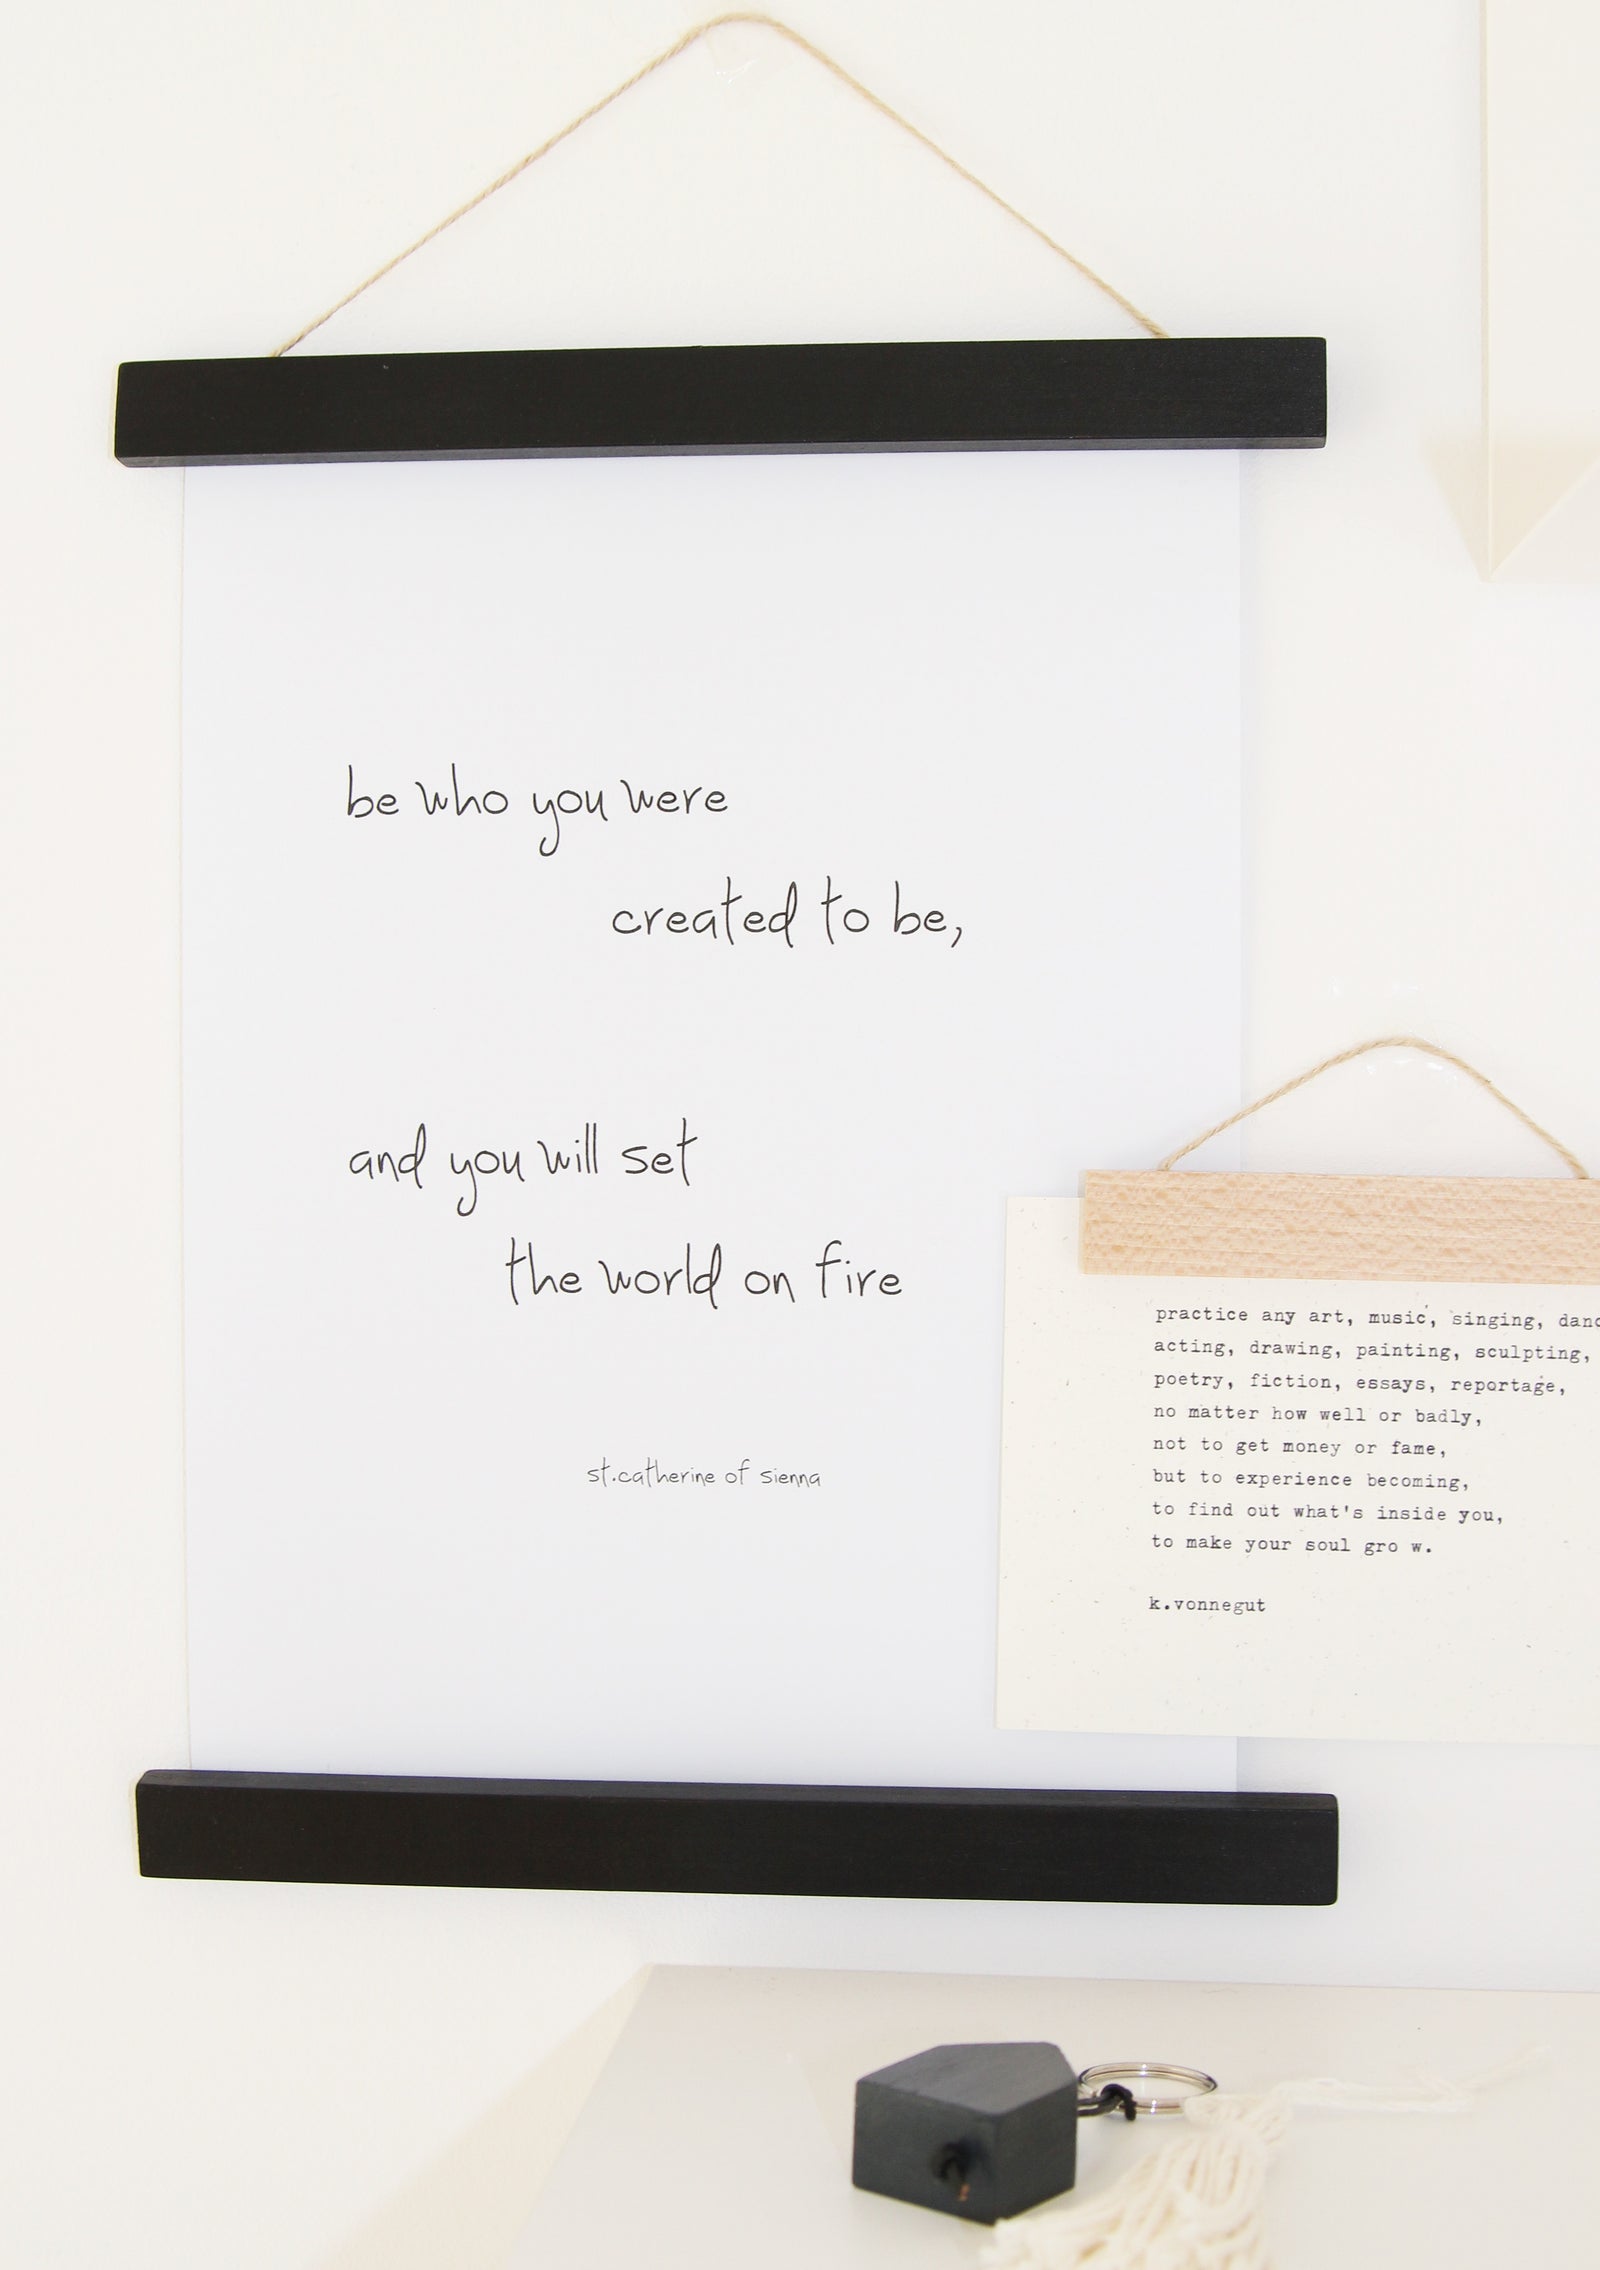 be who you were
created to be,
and you will set
the world on fire
st.catherine of sienna
practice any art, music, singing, danc
acting, drawing, painting, sculpting,
poetry, fiction, essays, reportage,
no matter how well or badly,
not to get money or fame,
but to experience becoming,
to find out what's inside you,
to make your soul gro w.
k.vonnegut